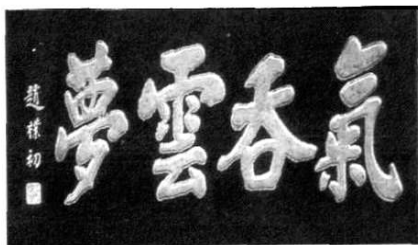 氣吞雲夢
趙樸初